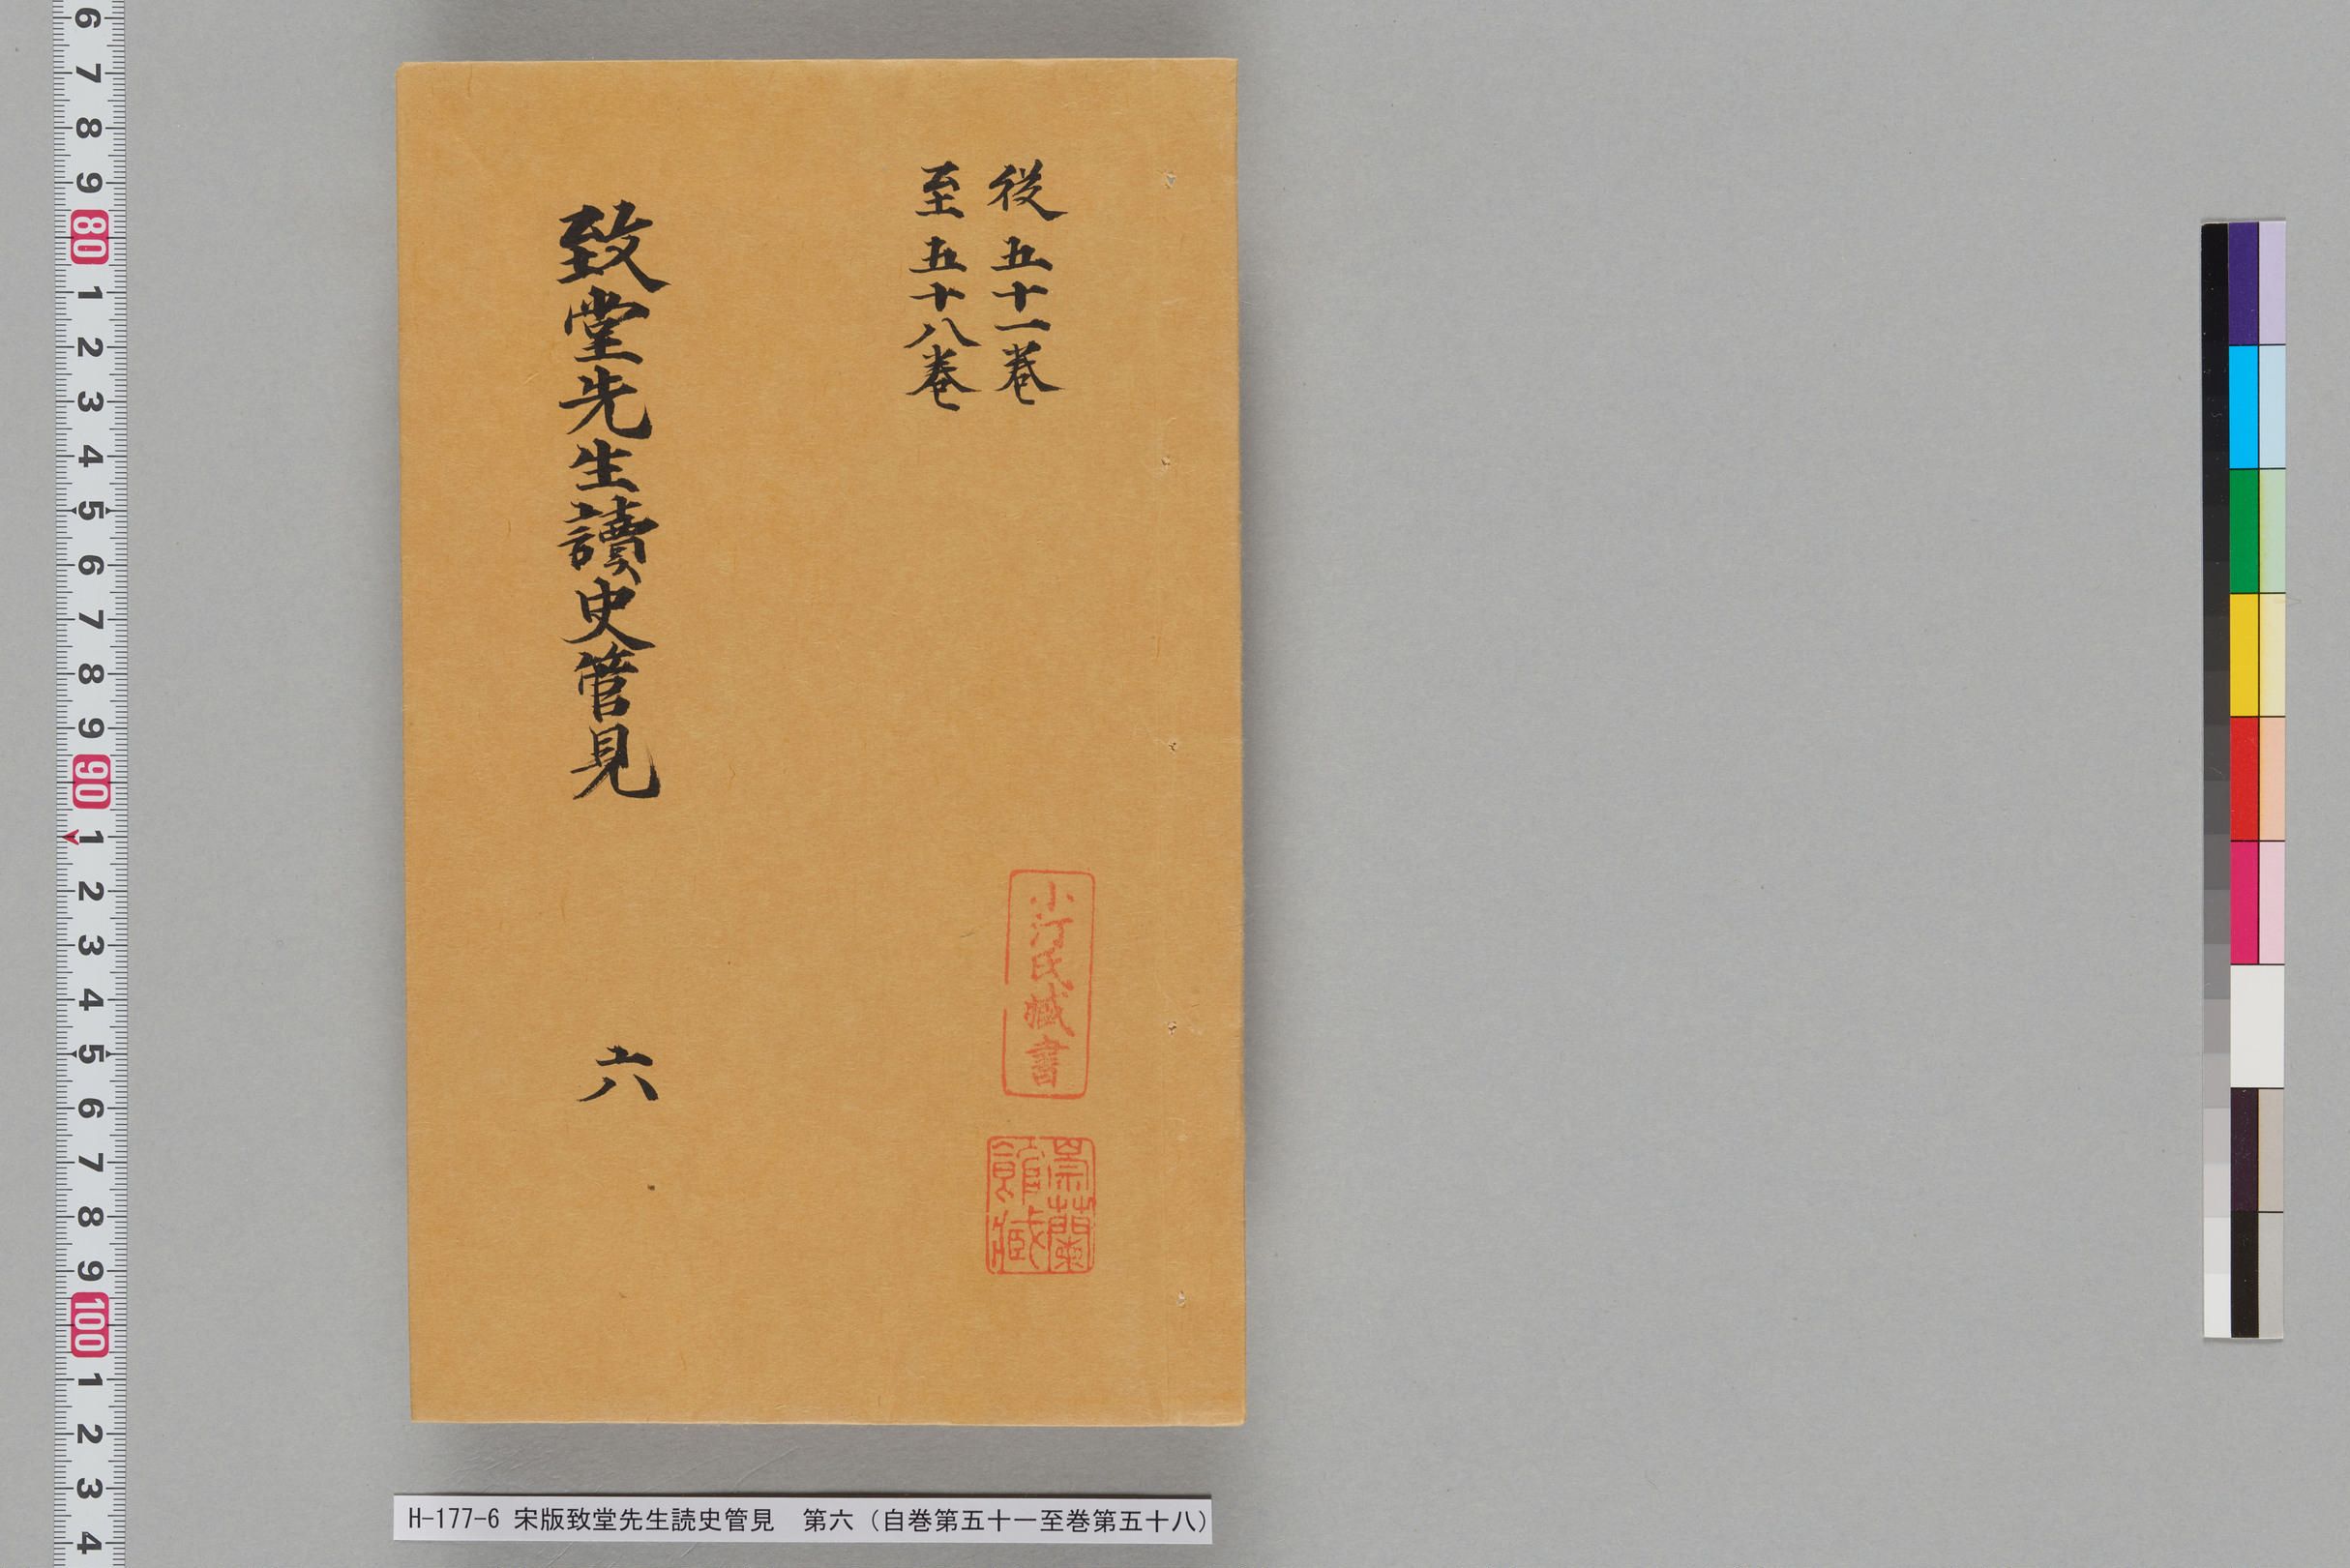 従五十一巻
至五十八巻
致堂先生讀史管見
六
小汀氏藏書
崇蘭
館藏
H-177-6 宋版致堂先生読史管見　第六（自巻第五十一至巻第五十八）
6 7 8 9 80 1 2 3 4 5 6 7 8 9 90 1 2 3 4 5 6 7 8 9 100 1 2 3 4